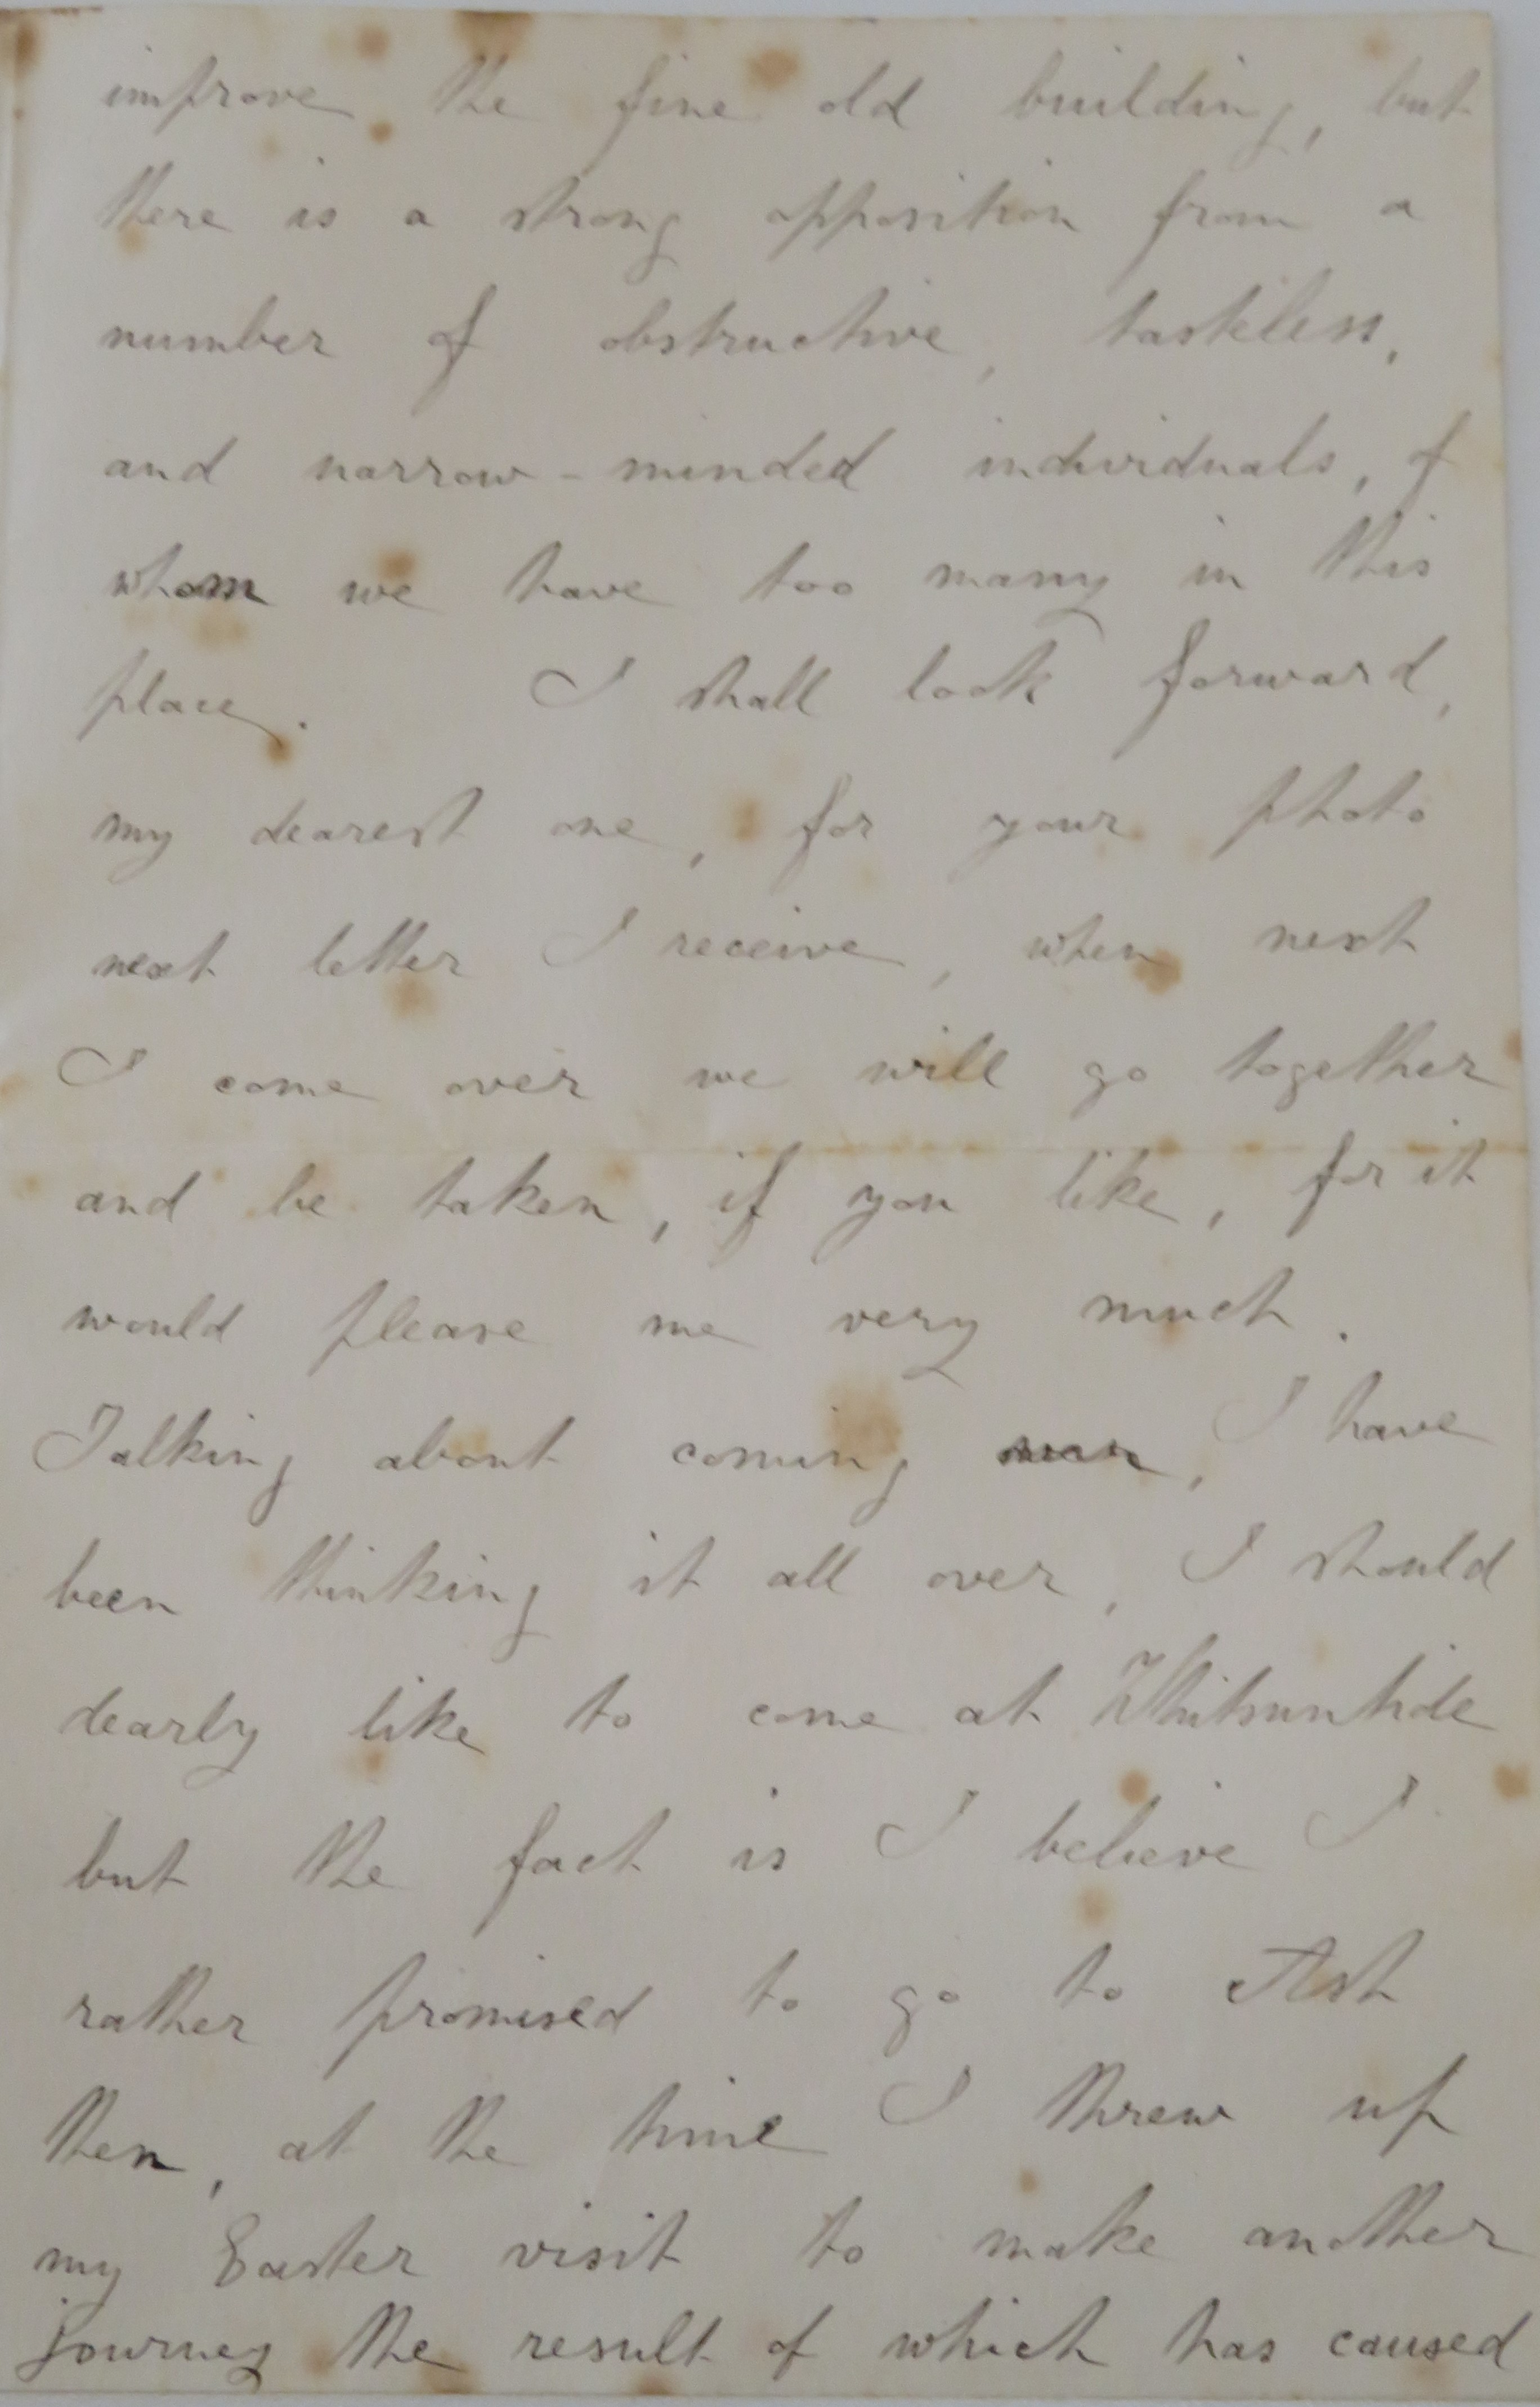 improve the fine old building, but
there is a strong opposition from a
number of obstructive, tasteless,
and narrow-minded individuals, of
whom we have too many in this
place. I shall look forward,
my dearest one, for your photo
next letter I receive, when next
I come over we will go together
and be taken, if you like, for it
would please me very much.
Talking about coming over, I have
been thinking it all over, I should
dearly like to come at Whitsuntide
but the fact is I believe I
rather promised to go to Ash
then, at the time I threw up
my Easter visit to make another
journey the result of which has caused